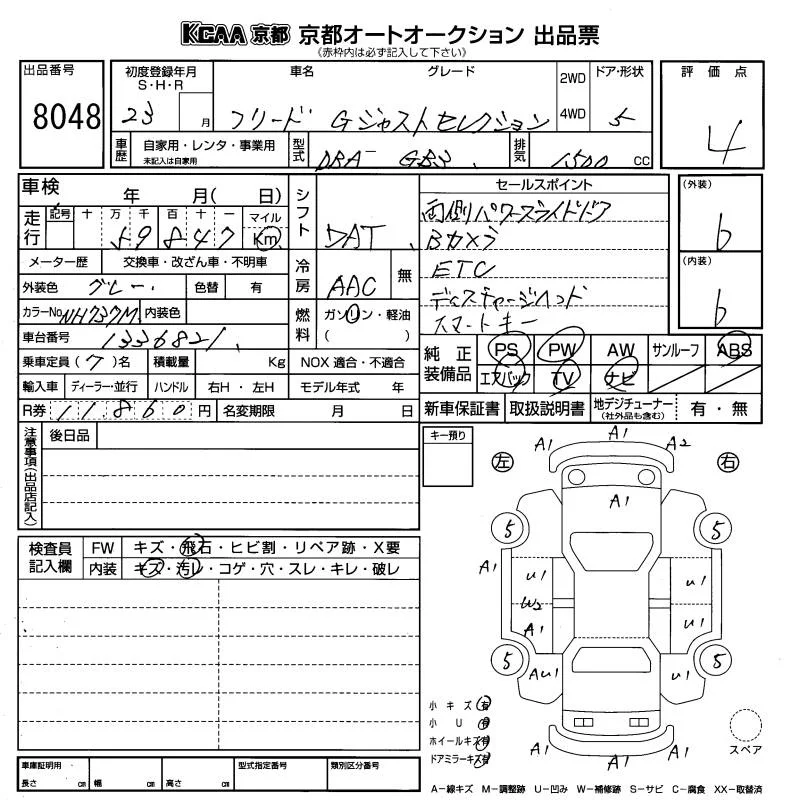 KCAA 京都 京都オートオークション 出品票
(赤枠内は必ず記入して下さい)
出品番号
8048
初度登録年月
S・H・R
23 月
車名 グレード
フリード Gジャストセレクション
2WD
4WD
ドア・形状
5
評価点
4
車歴
自家用・レンタ・事業用
未記入は自家用
型式
DBA- GB3
排気
1500 cc
車検 年 月( 日)
走行
記号 十 万 千 百 十 一 マイル
59847 Km
メーター歴 交換車・改ざん車・不明車
外装色 グレー 色替 有
カラーNo. NH737M 内装色
車台番号 1336821
乗車定員(7)名 積載量 Kg
輸入車 ディーラー・並行 ハンドル 右H・左H
R券 11860円 名変期限 月 日
シフト
DAT
冷房
AAC 無
燃料
ガソリン・軽油
( )
NOX 適合・不適合
モデル年式 年
セールスポイント
両側パワースライドドア
Bカメラ
ETC
ディスチャージヘッド
スマートキー
(外装)
b
(内装)
b
純正装備品
PS PW AW サンルーフ ABS
エアバック TV ナビ
新車保証書 取扱説明書 地デジチューナー
(社外品も含む) 有・無
注意事項(出品店記入)
後日品
検査員記入欄
FW キズ・飛石・ヒビ割・リペア跡・X要
内装 キズ・汚レ・コゲ・穴・スレ・キレ・破レ
キー預り
左
右
A1 A1 A2
A1
5 5
A1 U1 U1
W2
A1 U1
5 5
AU1 U1
A1 A1
小キズ 有
小U 有
ホイールキズ 有
ドアミラーキズ 有
スペア
車庫証明用
長さ cm 幅 cm 高さ cm
型式指定番号
類別区分番号
A−線キズ M−調整跡 U−凹み W−補修跡 S−サビ C−腐食 XX−取替済